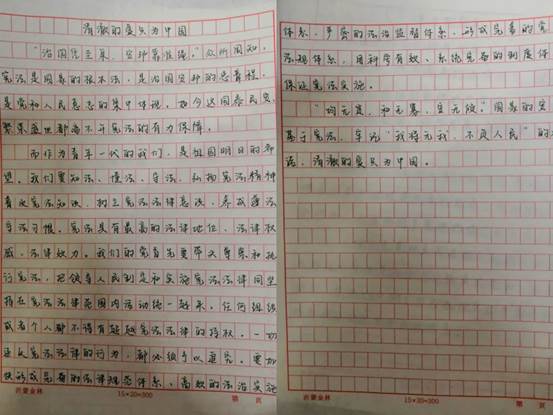 清澈的爱只为中国
"治国凭圭臬,安邦靠准绳。"众所周知,
宪法是国家的根本法,是治国安邦的总章程,
是党和人民意志的集中体现,如今这国泰民安,
繁荣盛世都离不开宪法的有力保障。
而作为青年一代的我们,是祖国明日的希
望。我们要知法、懂法、守法,弘扬宪法精神
普及宪法知识,树立宪法法律意识,养成遵法
守法习惯。宪法具有最高的法律地位、法律权
威、法律效力。我们的党首先要带头尊崇和执
行宪法,把领导人民制定和实施宪法法律同坚
持在宪法法律范围内活动统一起来。任何组织
或者个人都不得有超越宪法法律的特权。一切
违反宪法法律的行为,都必须予以追究。要加
快形成完备的法律规范体系、高效的法治实施
沂蒙金林 15×20=300 第 页
体系、严密的法治监督体系,形成完善的党
法规体系,用科学有效、系统完备的制度体
保证宪法实施。
"均无贫,和无寡,安无倾。"国家的安
基于宪法,牢记"我将无我,不负人民"的
语,清澈的爱只为中国。
沂蒙金林 15×20=300 第 页